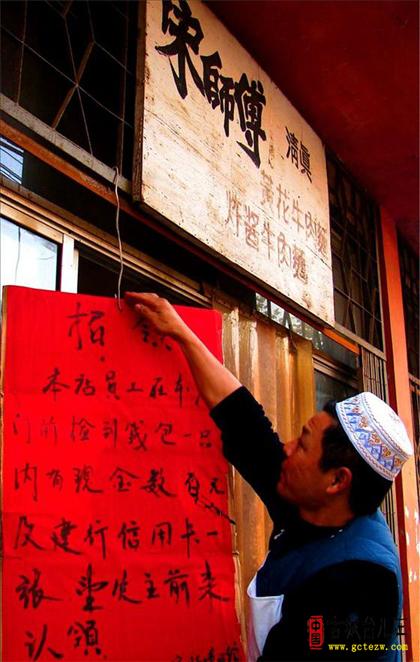 宋師傅
清真
黄花牛肉麵
炸酱牛肉麵
招领
本店员工在本
门前捡到钱包一只
内有现金数百元
及建行信用卡一
张望失主前来
认领
中国
www.gctezw.com